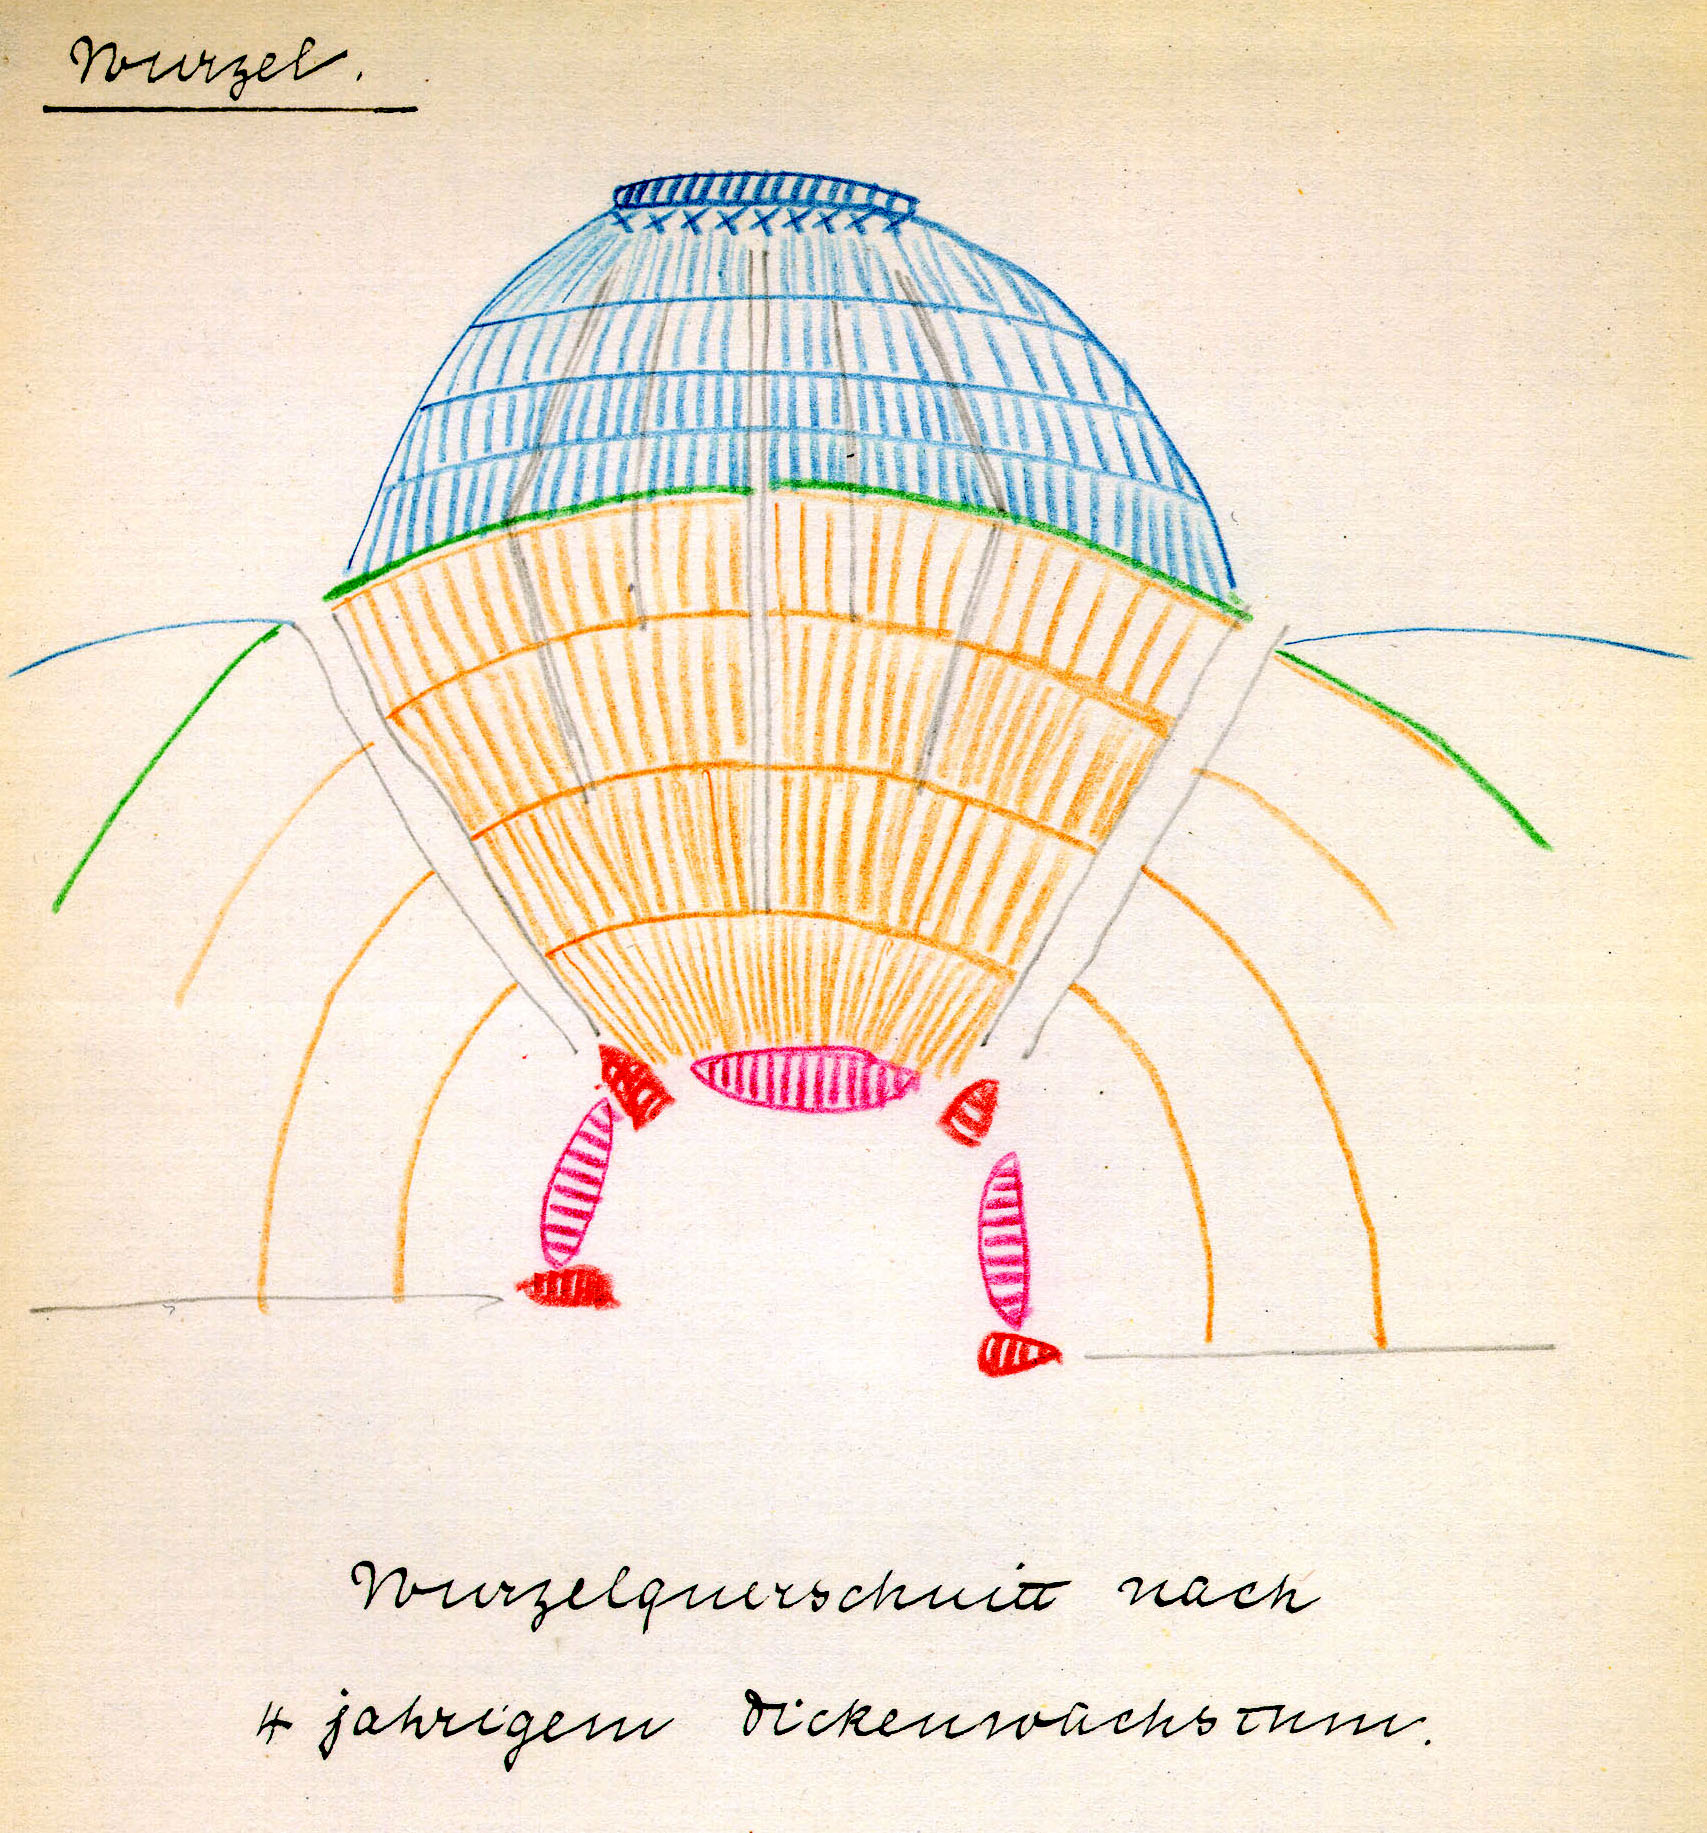 Wurzel.
Wurzelquerschnitt nach
4 jahrigem Dickenwachstum.